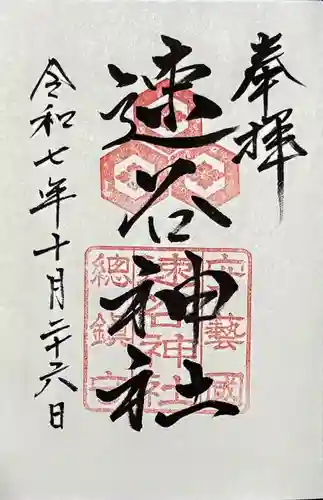 奉拝
速谷神社
安藝國
速谷神社
總鎮守
令和七年十月二十六日